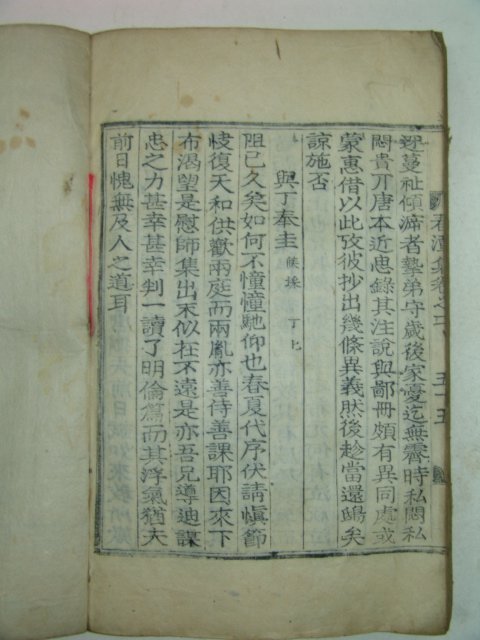 迓蔓祉傾溯者摯弟守歲後家憂迄無霽時私悶私
悶貴丌唐本近思錄其注說與鄙冊頗有異同處或
蒙惠借以此攷彼抄出幾條異義然後趁當還鴟矣
諒施否
與丁奉圭 丁巳
阻已久矣如何不憧憧馳仰也春夏代序伏請愼節
悽復天和供歡兩庭而兩胤亦善侍善課耶因來下
布渴望是慰師集出末似在不遠是亦吾兄導迪謀
忠之力甚幸甚幸判一讀了明倫篇而其浮氣猶夫
前日愧無及人之道耳
集卷之 五十五